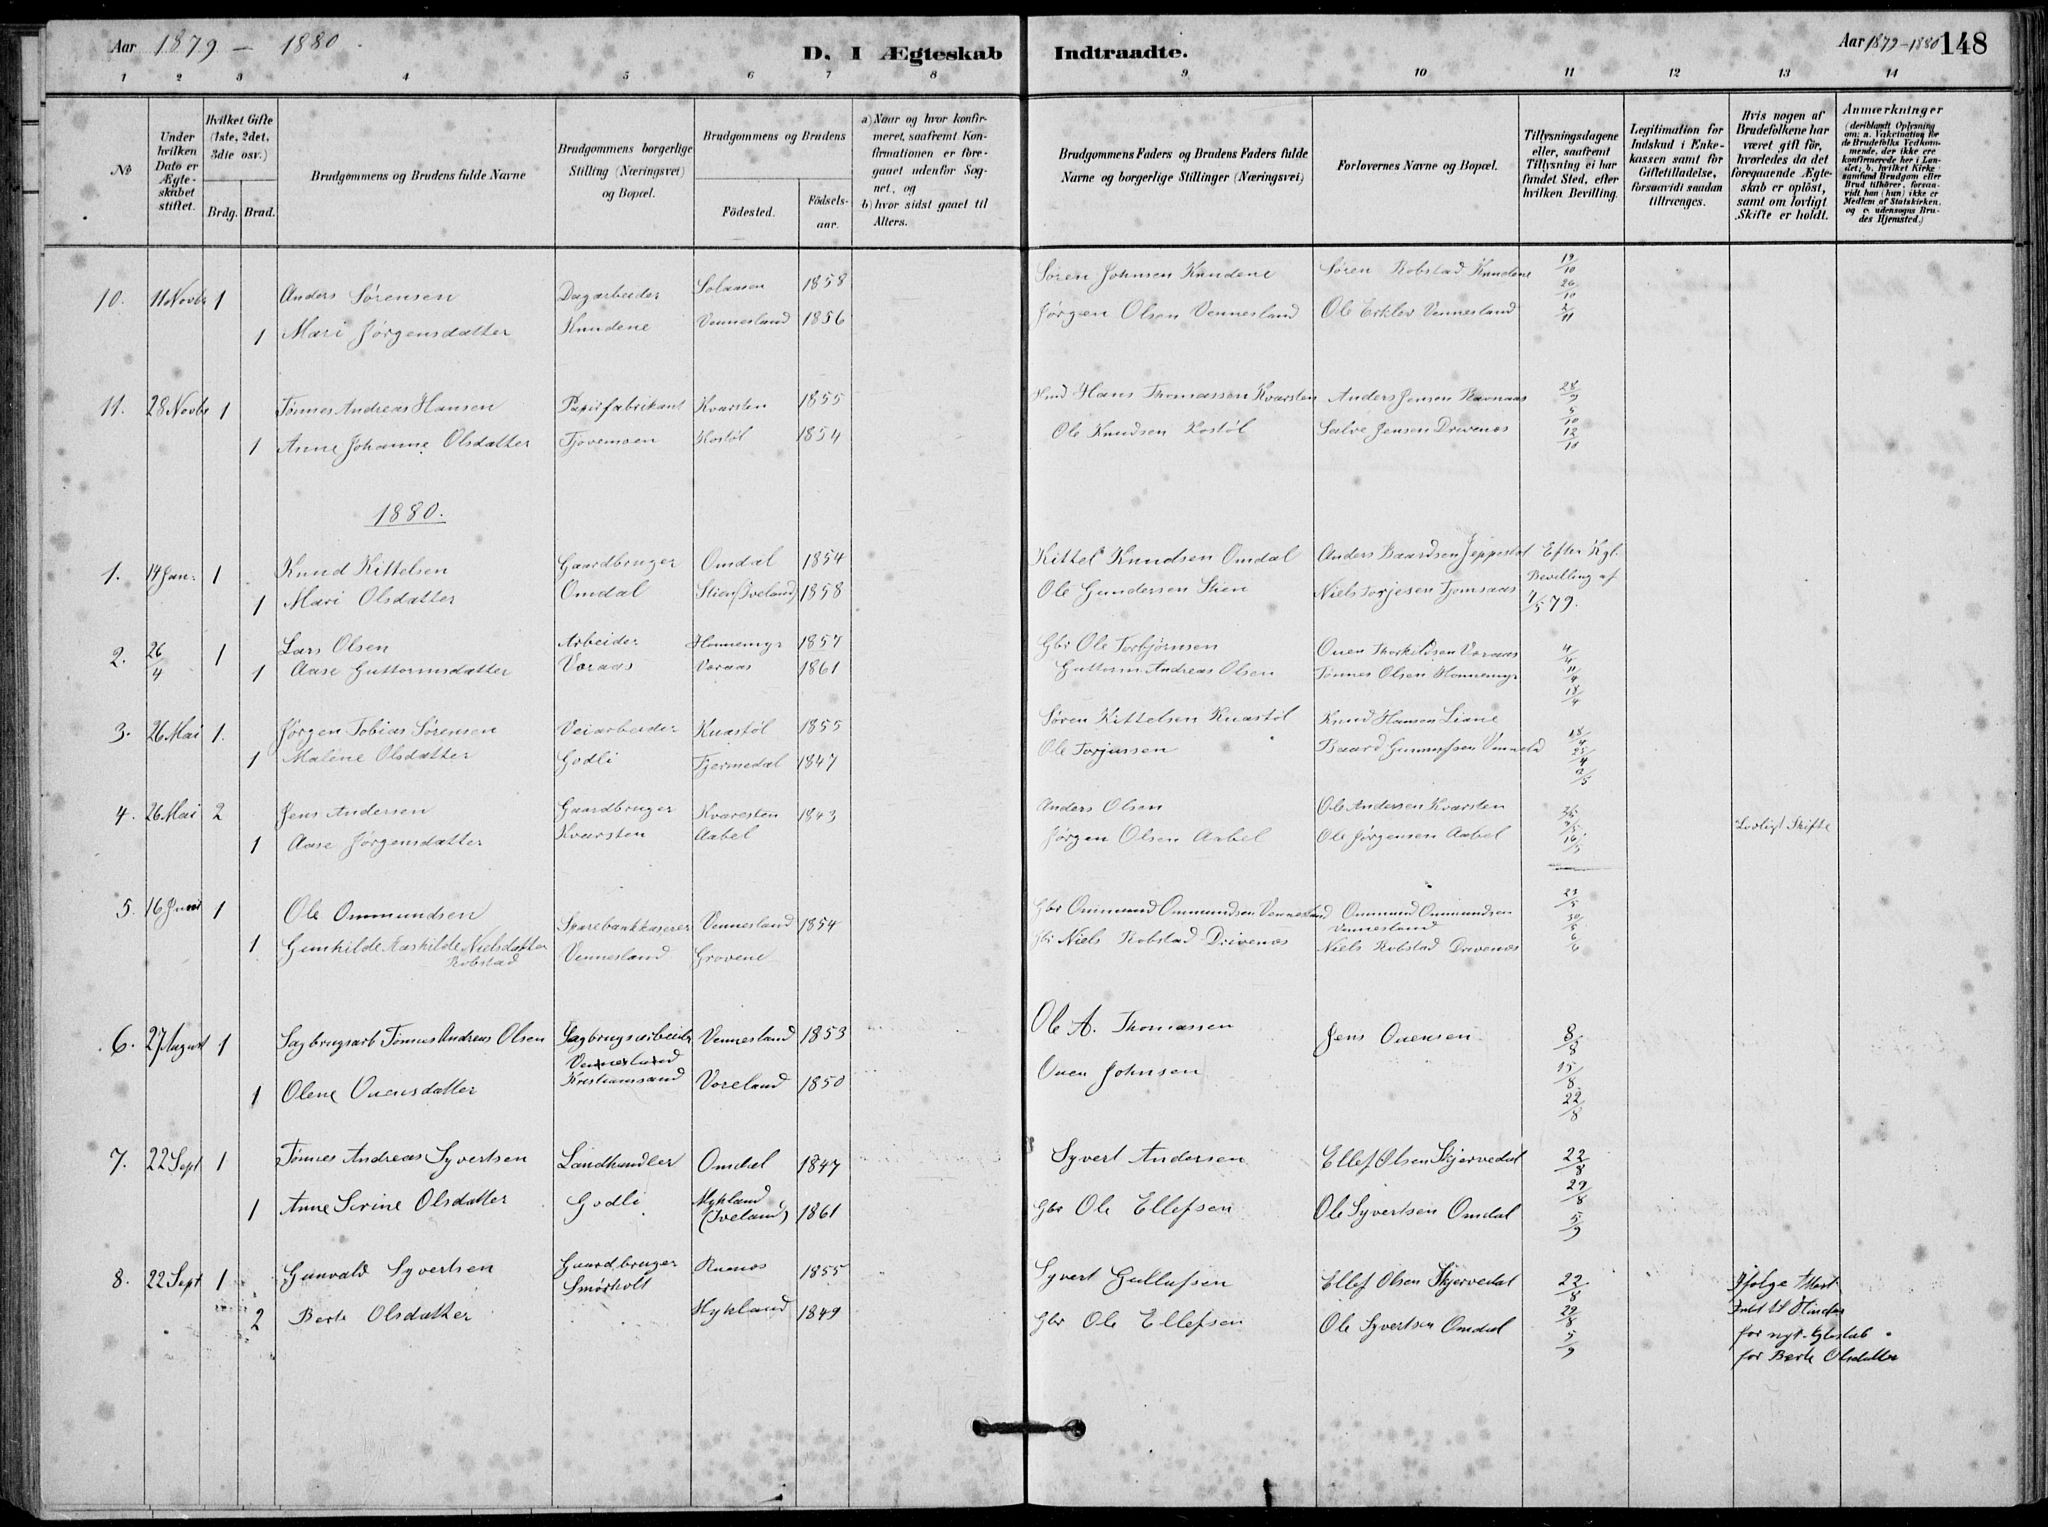 Aar 1879 – 1880.
D. I Ægteskab Indtraadte.
Aar 1879–1880 148
1 2 3 4 5 6 7 8 9 10 11 12 13 14
No
Under hvilken Dato er Ægteskabet stiftet.
Hvilket Gifte (1ste, 2det, 3die osv.)
Brdg. Brud.
Brudgommens og Brudens fulde Navne
Brudgommens borgerlige Stilling (Næringsvei) og Bopæl.
Brudgommens og Brudens
Fødested. Fødselsaar.
a) Naar og hvor konfirmeret, saafremt Konfirmationen er foregaaet udenfor Sognet, og
b) hvor sidst gaaet til Alters.
Brudgommens Faders og Brudens Faders fulde Navne og borgerlige Stillinger (Næringsvei)
Forlovernes Navne og Bopæl.
Tillysningsdagene eller, saafremt Tillysning ei har fundet Sted, efter hvilken Bevilling.
Legitimation for Indskud i Enkekassen samt for Giftetilladelse, forsaavidt saadan tiltrænges.
Hvis nogen af Brudefolkene har været gift før, hvorledes da det foregaaende Ægteskab er opløst, samt om lovligt Skifte er holdt.
Anmærkninger (deriblandt Oplysning om: a. Vakcination for de Brudefolks Vedkommende, der ikke ere konfirmerede her i Landet; b. hvilket Kirkesamfund Brudgom eller Brud tilhører, forsaavidt han (hun) ikke er Medlem af Statskirken, og c. udensogns Brudes Hjemsted.)
10. 11 Novbr 1 Anders Sørensen Dagarbeider Solaasen 1858 Søren Johnsen Knudene Søren Robstad Knudene 19/10
26/10
1 Mari Jørgensdatter Knudene Vennesland 1856 Jørgen Olsen Vennesland Ole Erklev Vennesland 2/11
11. 28 Novbr 1 Tønnes Andreas Hansen Papirfabrikant Kvarsten 1855 Hmd Hans Thomassen Kvarsten Anders Jensen Ravnaas 28/9
5/10
1 Anne Johanne Olsdatter Tjovemoen Kostøl 1854 Ole Knudsen Kostøl Salve Jensen Drivenes 12/10
1880.
1. 14 Jan. 1 Knud Kittelsen Gaardbruger Omdal 1854 Kittel Knudsen Omdal Anders Baardsen Jeppestøl Efter Kgl.
Bevilling af
1 Mari Olsdatter Omdal Stien (Iveland) 1858 Ole Gundersen Stien Niels Torjesen Tjomsaas 9/5 79.
2. 26/4 1 Lars Olsen Arbeider Honnemyr 1857 Gbr Ole Torbjørnsen Ouen Thorkildsen Voraas 4/4
1 Aase Guttormsdatter Voraas Voraas 1861 Guttorm Andreas Olsen Tønnes Olsen Honnemyr 11/4
18/4
3. 26 Mai 1. Jørgen Tobias Sørensen Veiarbeider Knastøl 1855 Søren Kittelsen Knastøl Knud Hansen Liane 18/4
1 Malene Olsdatter Godli Fjermedal 1847 Ole Torjussen Baard Gunnufsen Vennesld 25/4
2/5
4. 26 Mai 2 Jens Andersen Gaardbruger Kvaresten 1843 Anders Olsen Ole Andersen Kvarsten
1 Aase Jørgensdatter Kvarsten Aabel Jørgen Olsen Aabel Ole Jørgensen Aabel 16/5 Lovligt Skifte
5. 16 Juni 1 Ole Ommundsen Sparebankkaserer Vennesland 1854 Gbr Ommund Ommundsen Vennesland Ommund Ommundsen Vennesland 23/5
30/5
1 Gunhilde Raskilde Nielsdatter Robstad Vennesland Grovene Gbr Niels Robstad Drivenes Niels Robstad Drivenes 6/6
6. 27 August 1 Sagbrugsarb Tønnes Andreas Olsen Sagbrugsarbeider Vennesland 1853 Ole A. Thomassen Jens Ouensen 8/8
Vennesland
15/8
1 Olene Ouensdatter Kristianssand Voreland 1850 Ouen Johnsen 22/8
7. 22 Sept 1 Tønnes Andreas Syvertsen Landhandler Omdal 1847 Syvert Andersen Ellef Olsen Skjervedal 22/8
29/8
1 Anne Serine Olsdatter Godli Hykland (Iveland) 1861 Gbr Ole Ellefsen Ole Syvertsen Omdal 5/9
8. 22 Sept 1 Gunvald Syvertsen Gaardbruger Smørholt Rames 1855 Syvert Gullufsen Ellef Olsen Skjervedal 22/8 Ifølge Attest
29/8 Intet til Hinder
2 Berte Olsdatter Hykland 1849 Gbr Ole Ellefsen Ole Syvertsen Omdal 5/9 for nyt Egteskab
for Berte Olsdatter